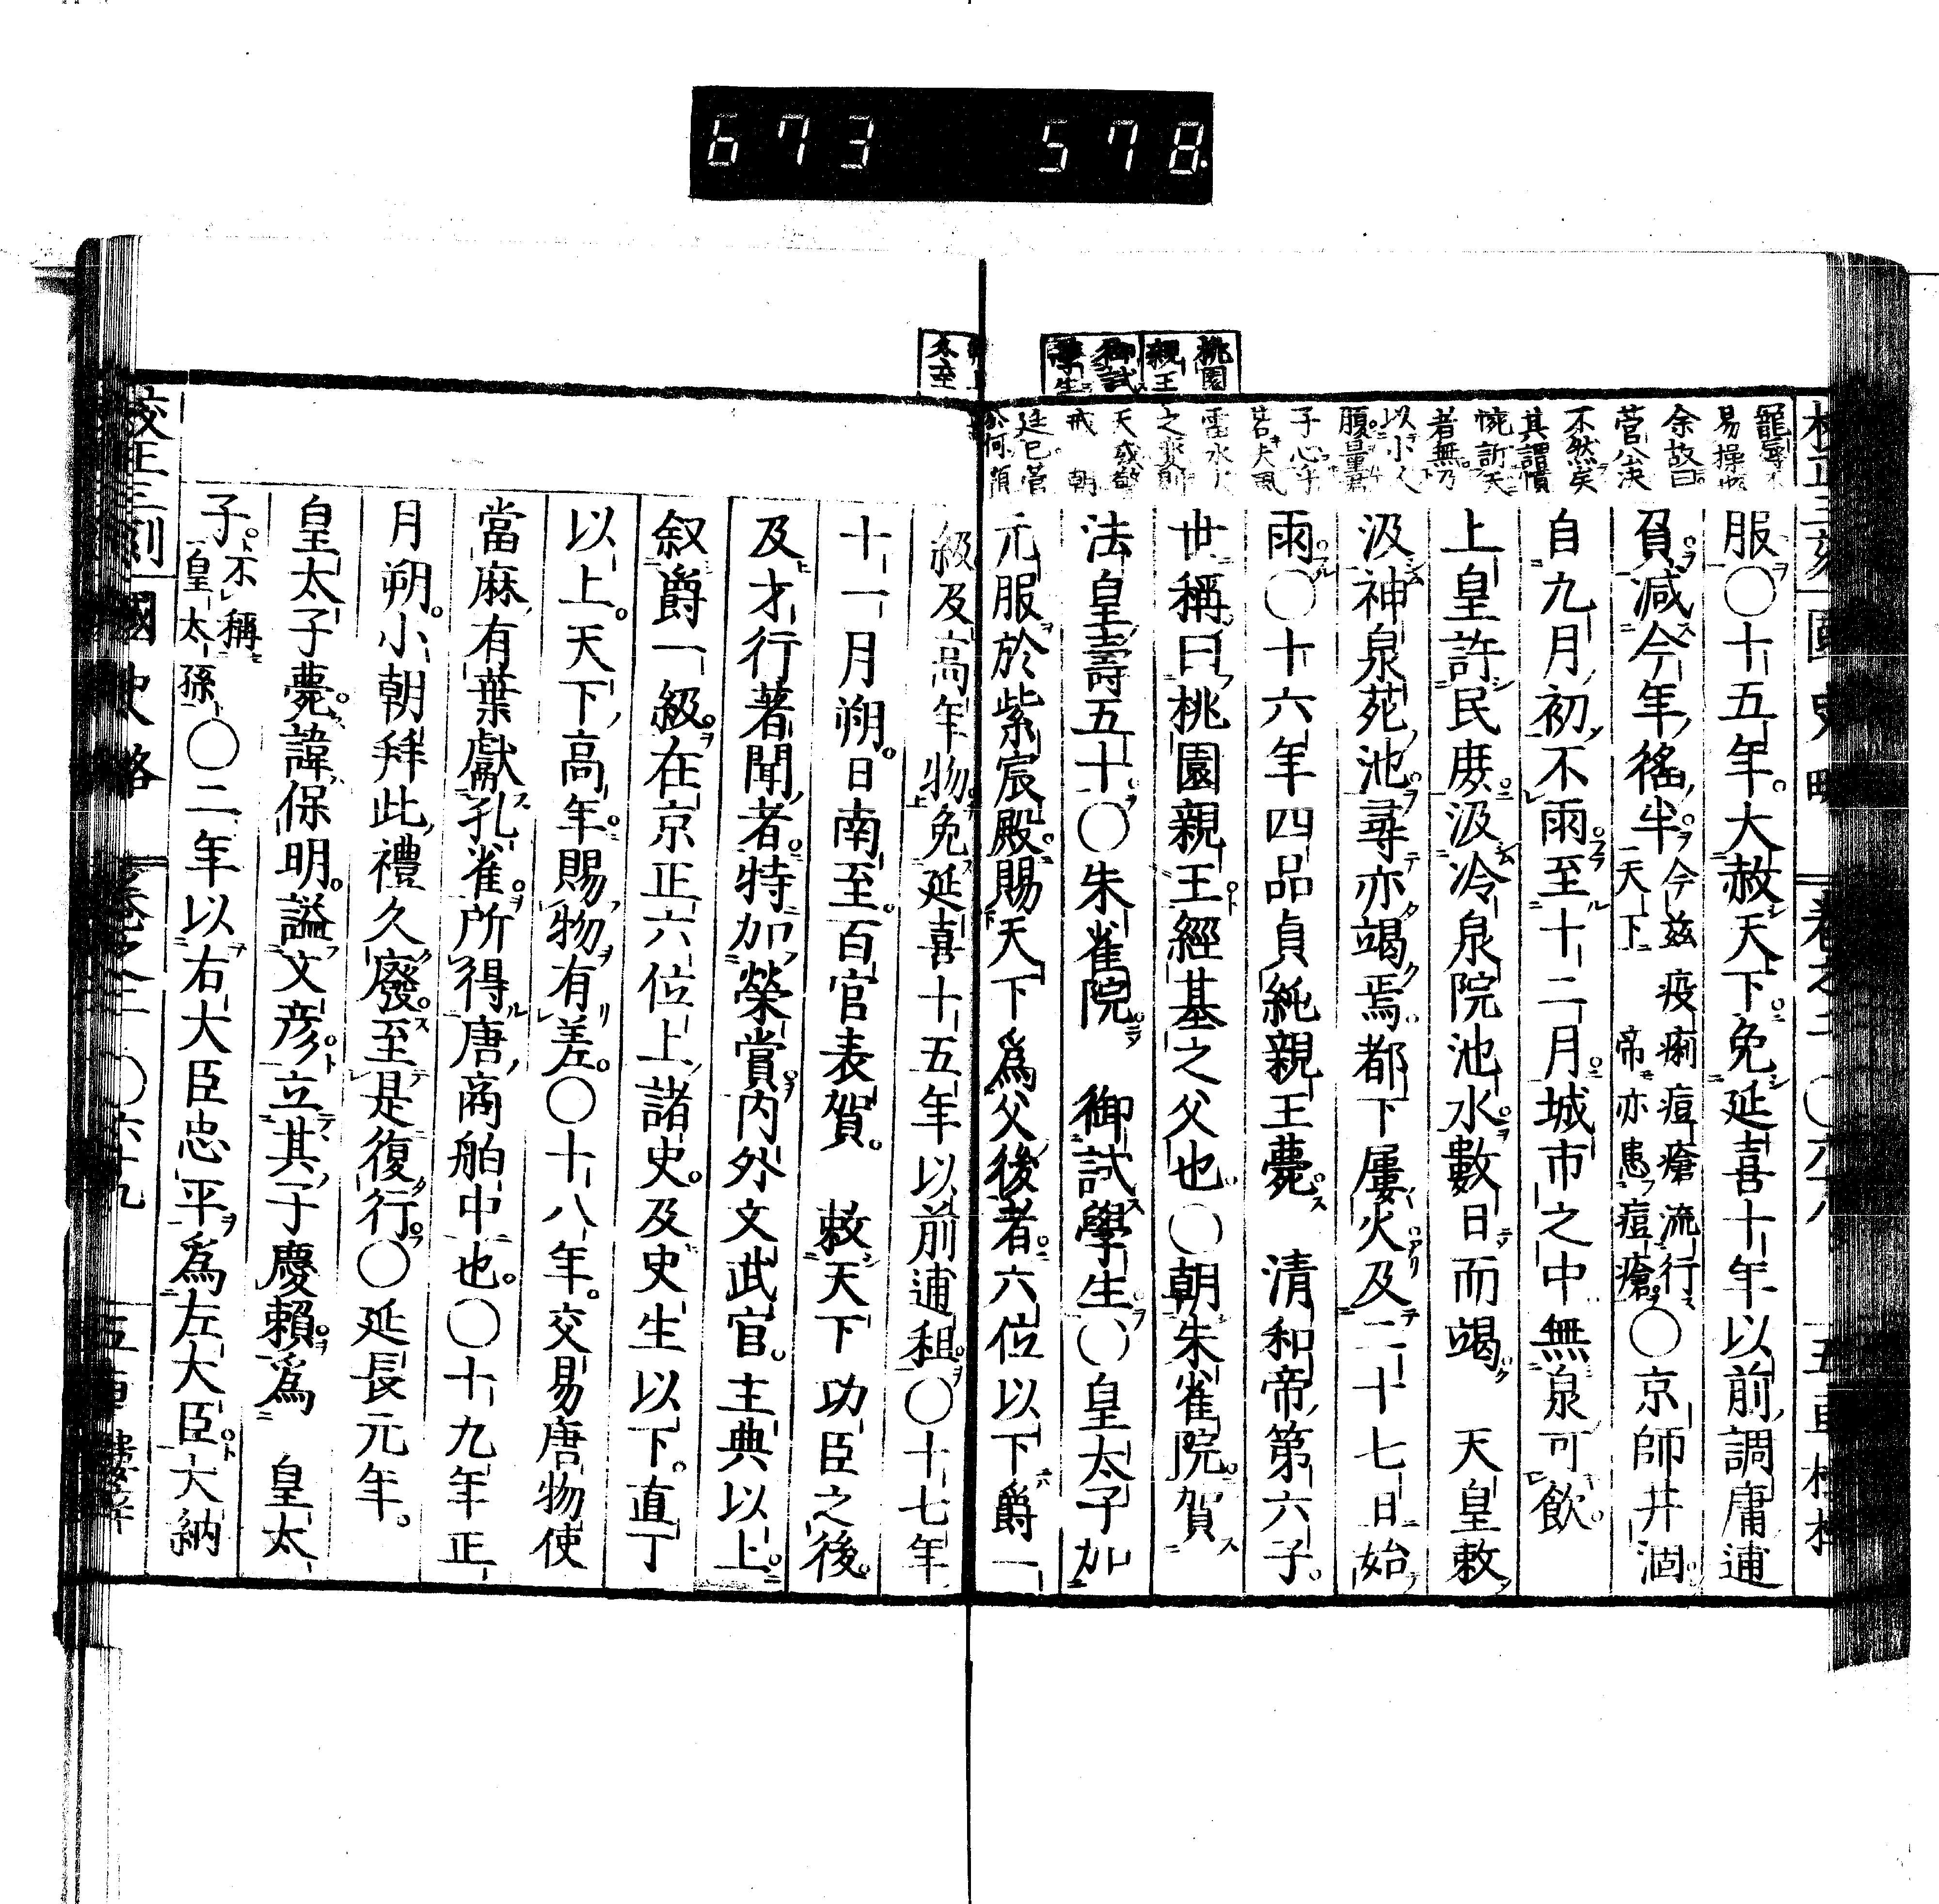 673 578
桃園
親王
御試
學生
冬至
易操
余故曰
菅公決
不然矣
其謂憤
惋訴天
者無乃
以小人
腹量君
子心乎
天或
戒 朝
廷已菅
服〇十五年大赦天下免延喜十年以前調庸逋
負減今年徭半今茲疫痢痘瘡流行
天下 帝亦患痘瘡〇京師井涸
自九月初不雨至十二月城市之中無泉可飲
上皇許民庶汲冷泉院池水數日而竭 天皇敕
汲神泉苑池尋亦竭焉都下屢火及二十七日始
雨〇十六年四品貞純親王薨 清和帝第六子
世稱曰桃園親王經基之父也〇朝朱雀院賀
法皇壽五十〇朱雀院 御試學生〇皇太子加
元服於紫宸殿賜天下爲父後者六位以下爵一
級及高年物免延喜十五年以前逋租〇十七年
十一月朔日南至百官表賀 敕天下功臣之後
及才行著聞者特加榮賞内外文武官主典以上
叙爵一級在京正六位上諸史及史生以下直丁
以上天下高年賜物有差〇十八年交易唐物使
當麻有葉獻孔雀所得唐商舶中也〇十九年正
月朔小朝拜此禮久廢至是復行〇延長元年
皇太子薨諱保明謚文彦立其子慶賴爲 皇太
子不稱
皇太孫〇二年以右大臣忠平爲左大臣大納
校正三刻 國史略 卷之二 〇六十九 五車樓梓